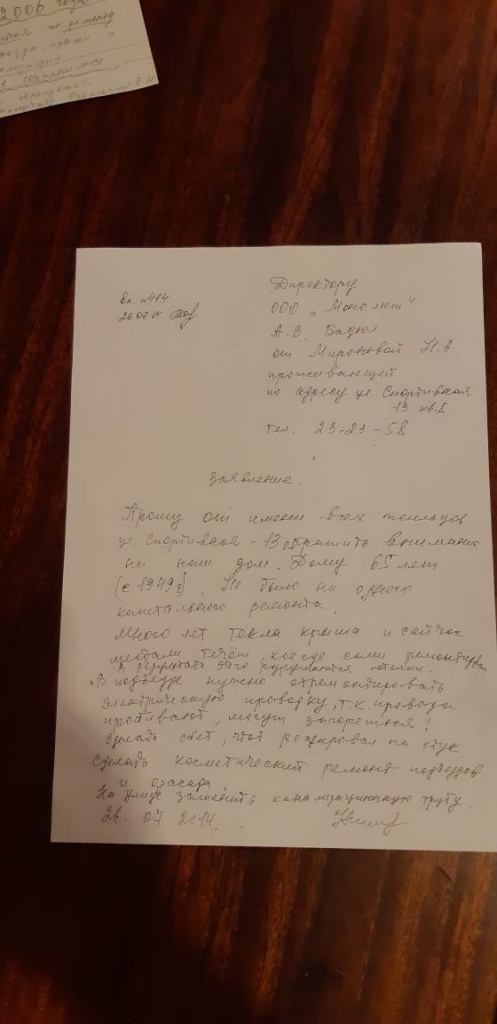 2006 года
Вх. №414
26 07 14
Директору
ООО „Монолит"
А.В. Бадюл
от Мироновой Н.В
проживающей
по адресу ул. Спортивная
13 кв.
тел. 23-23-58
Заявление.
Прошу от имени всех жильцов
ул. Спортивная - 13 обратить внимание
на наш дом. Дому 65 лет
(с 1949г). Не было ни одного
капитального ремонта.
Много лет текла крыша и сейчас
местами течёт, кое где сами ремонтировали
В результате этого разрушаются потолки.
В подъезде нужно отремонтировать
электрическую проводку, т.к. провода
пробивают, могут загореться!
Сделать свет, чтоб реагировал на стук.
Сделать косметический ремонт подъездов
и фасада.
На улице заменить канализационную трубу.
26. 07. 2014.